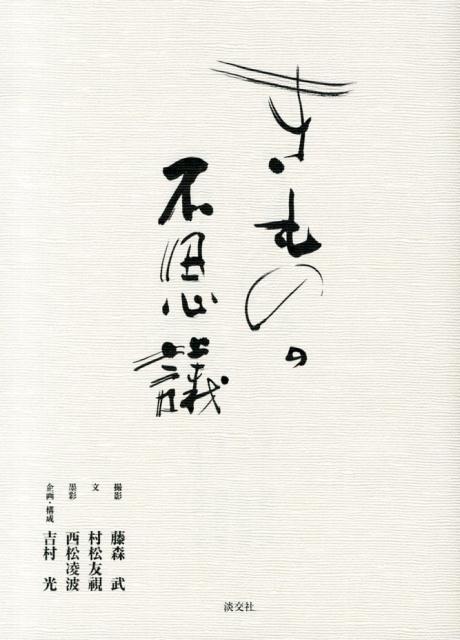 きものの
不思議
撮影 藤森 武
文 村松友視
墨彩 西松凌波
企画・構成 吉村 光
淡交社